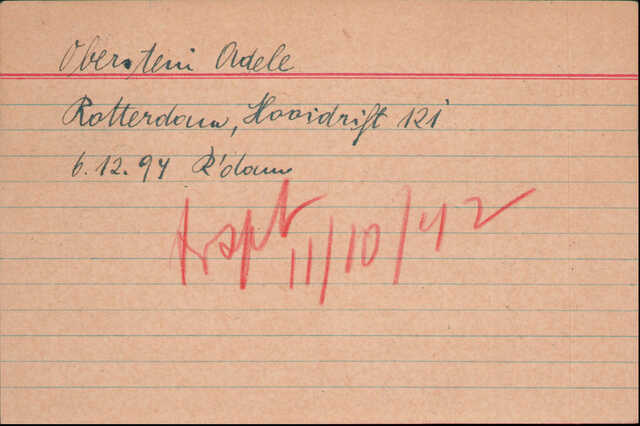 Oberstein Adele
Rotterdam, Hooidrift 121
6.12.94 R'dam
trspt 11/10/42